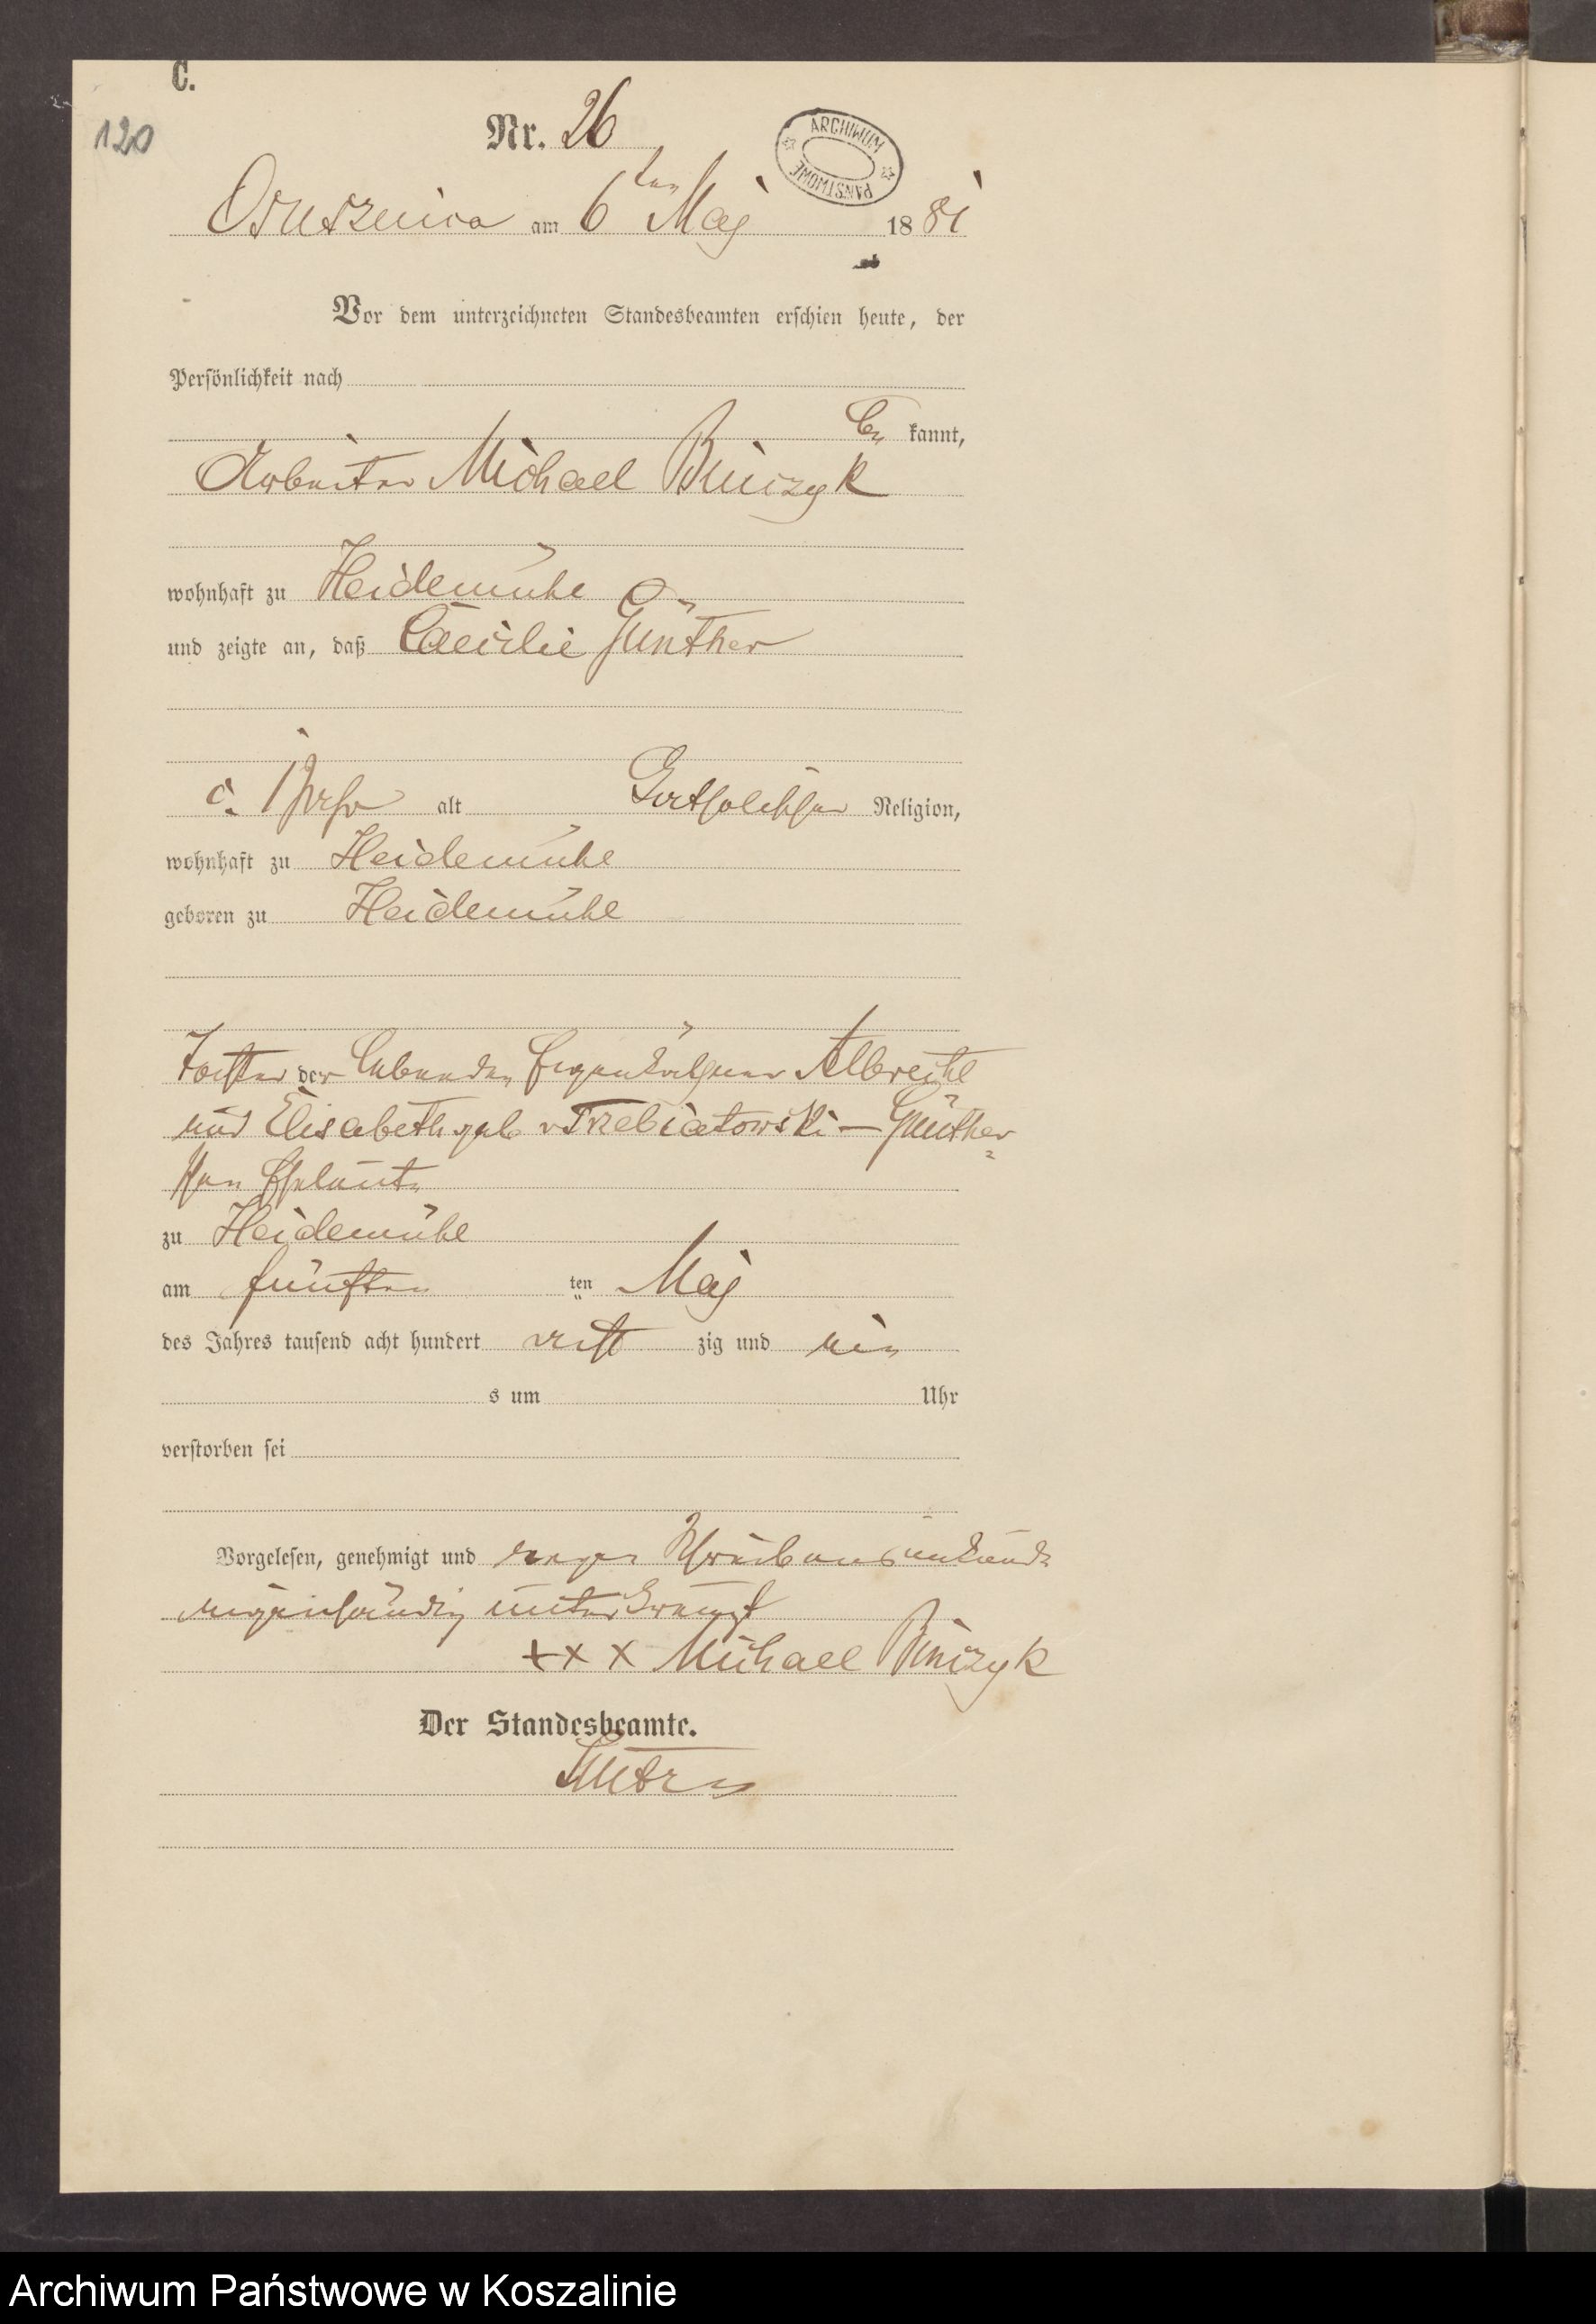 C.
120
Nr. 26
ARCHIWUM PAŃSTWOWE
Osusznica am 6ten Maj 1881
Vor dem unterzeichneten Standesbeamten erschien heute, der
Persönlichkeit nach
be kannt,
Arbeiter Michael Binczyk
wohnhaft zu Heidemühl
und zeigte an, daß Cäcilie Günther
c. 1 Jahr alt katholischer Religion,
wohnhaft zu Heidemühl
geboren zu Heidemühl
Tochter der lebenden Eigenkäthner Albrecht
und Elisabeth geb v Trzebiatowski – Günther
schen Eheleute
zu Heidemühl
am fünften ten Maj
des Jahres tausend acht hundert acht zig und ein
s um Uhr
verstorben sei
Vorgelesen, genehmigt und wegen Schreibensunkunde
eigenhändig unterkreuzt
+++ Michael Binczyk
Der Standesbeamte.
Archiwum Państwowe w Koszalinie